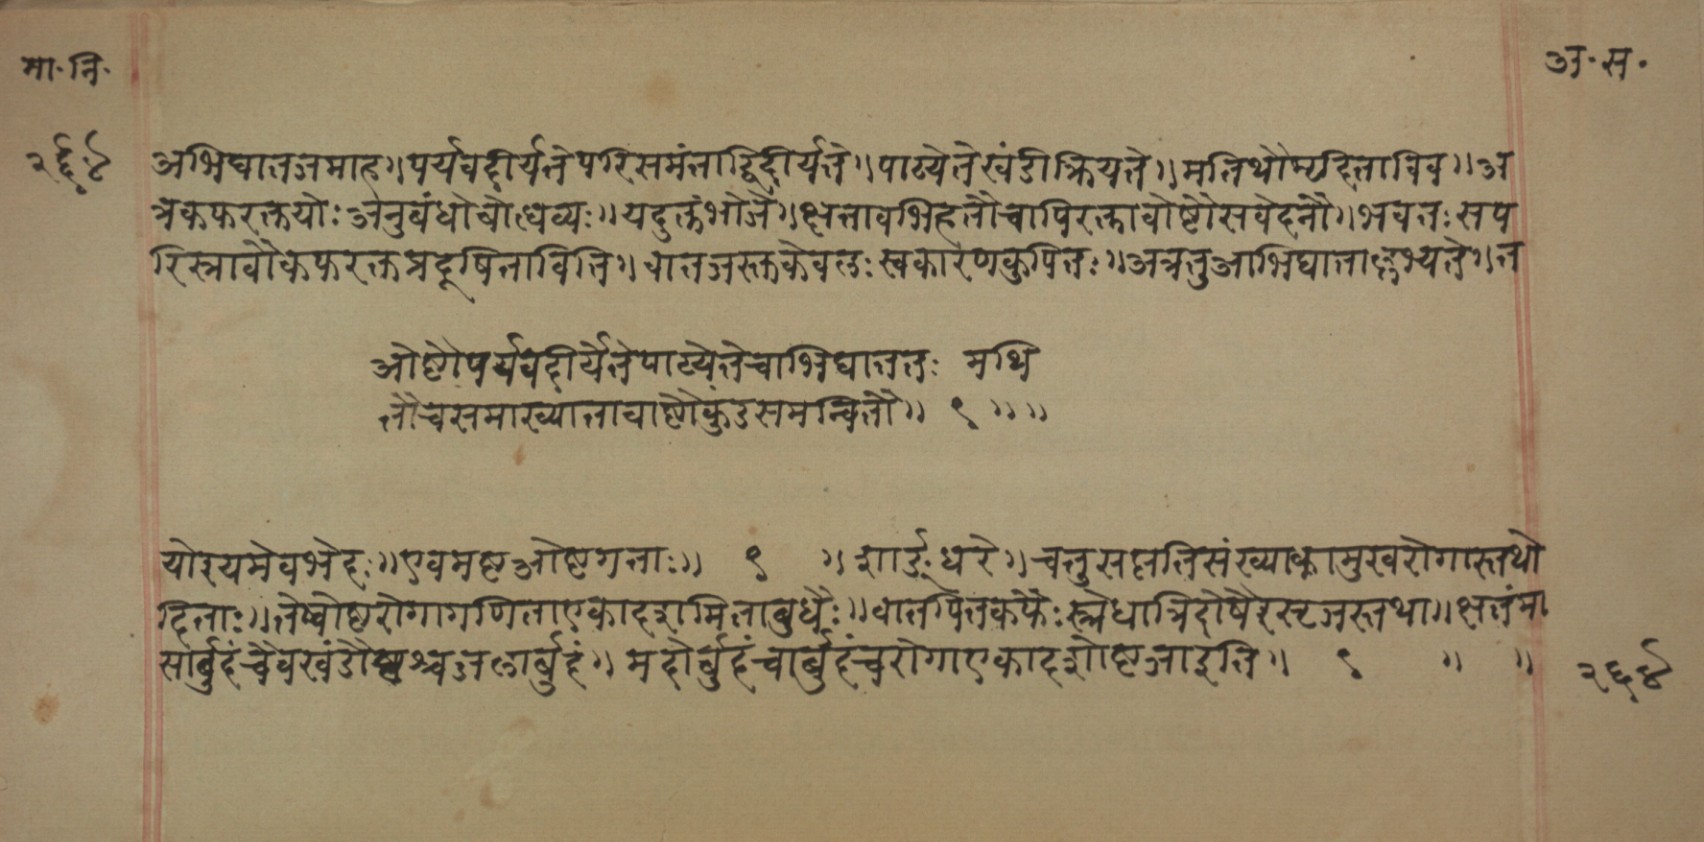 मा॰नि॰
अ॰स॰
२६४
अभिघातजमाह॥पर्यवदीर्यतेपरिसमंताद्विदीर्यते॥पाट्येतेखंडीक्रियते॥मतिथौग्रहिताविव॥अ
त्रकफरक्तयोःअनुबंधोबोध्यव्यः॥यदुक्तंभोजे॥क्षतावभिहतौचापिरक्तावोष्टौसवेदनौ॥भवतःसप
रिस्त्रावौकफरक्तप्रदूषिताविति॥वातजस्तकेवलःस्वकारणकुपितः॥अत्रतुआभिघाताल्लभ्यते॥त
ओष्टौपर्यवदीर्येतेपाट्येतेचाभिघाततः मथि
तौचसमाख्यातावाष्टौकंडुसमन्वितौ॥ १ ॥ ॥
योरयमेवभेदः॥एवमष्टओष्टगताः॥ १ ॥शार्ङ्गधरे॥चतुसप्ततिसंख्याकामुखरोगास्तथो
दिताः॥तेष्वोष्टरोगागणिताएकादशमिताबुधैः॥वातपितकफैःस्त्रेधात्रिदोषैरसृजस्तथा॥क्षतंमा
सार्बुदंचैवखंडौष्टश्चजलार्बुदं॥मेदोर्बुदंचार्बुदंचरोगाएकादशोष्टजाइति॥ १ ॥ ॥
२६४